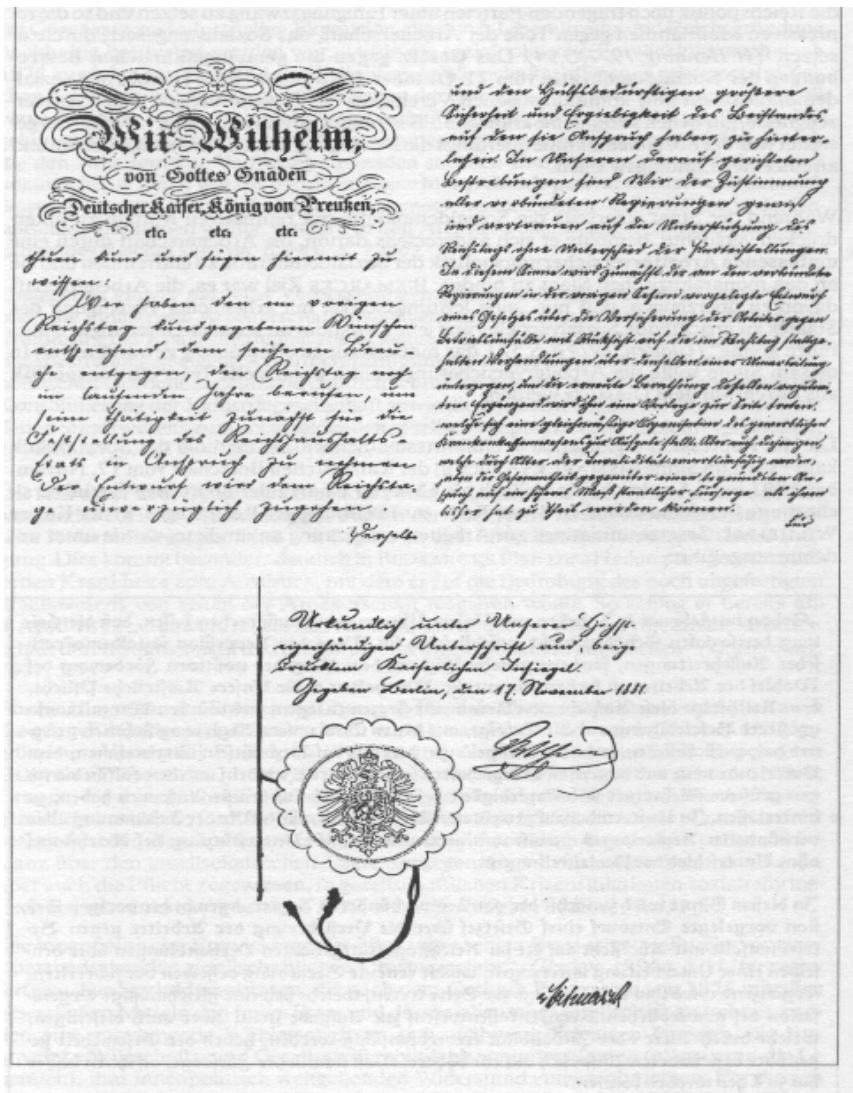 Wir Wilhelm,
von Gottes Gnaden
Deutscher Kaiser, König von Preußen,
etc: etc: etc:
thuen kund und fügen hiermit zu
wissen:
Wir haben den im vorigen
Reichstag kundgegebenen Wünschen
entsprechend, dem früheren Gebrau-
che entgegen, den Reichstag noch
im laufenden Jahre berufen, um
seine Thätigkeit zunächst für die
Feststellung des Reichshaushalts-
Etats in Anspruch zu nehmen.
Der Entwurf wird dem Reichsta-
ge unverzüglich zugehen.
Derselbe
und den Hülfsbedürftigen größere
Sicherheit und Ergiebigkeit des Beistandes,
auf den sie Anspruch haben, zu hinter-
lassen. In Unseren darauf gerichteten
Bestrebungen sind Wir der Zustimmung
aller verbündeten Regierungen gewiß
und vertrauen auf die Unterstützung des
Reichstags ohne Unterschied der Parteistellungen.
In diesem Sinne wird zunächst der von den verbündeten
Regierungen in der vorigen Session vorgelegte Entwurf
eines Gesetzes über die Versicherung der Arbeiter gegen
Betriebsunfälle mit Rücksicht auf die im Reichstag stattge-
habten Verhandlungen über denselben einer Umarbeitung
unterzogen, um die erneute Berathung desselben vorzuberei-
ten. Ergänzend wird ihm eine Vorlage zur Seite treten,
welche sich eine gleichmäßige Organisation des gewerblichen
Krankenkassenwesens zur Aufgabe stellt. Aber auch diejenigen,
welche durch Alter oder Invalidität erwerbsunfähig werden,
haben der Gesammtheit gegenüber einen begründeten An-
spruch auf ein höheres Maß staatlicher Fürsorge, als ihnen
bisher hat zu Theil werden können.
Urkundlich unter Unserer Höchst-
eigenhändigen Unterschrift und beige-
drucktem Kaiserlichen Insiegel.
Gegeben Berlin, den 17. November 1881.
Wilhelm
v Bismarck